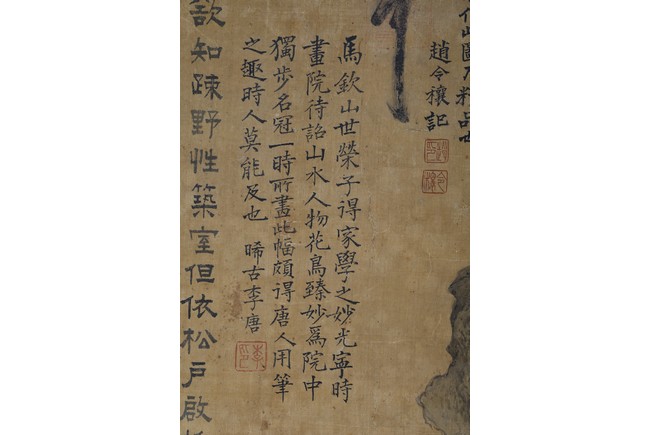 山圖乃精品
趙令穰記
令穰
馬欽山世榮子得家學之妙光寧時
畫院待詔山水人物花鳥臻妙爲院中
獨步名冠一時所畫此幅頗得唐人用筆
之趣時人莫能及也 晞古李唐
欲知疎野性築室但依松戶啟